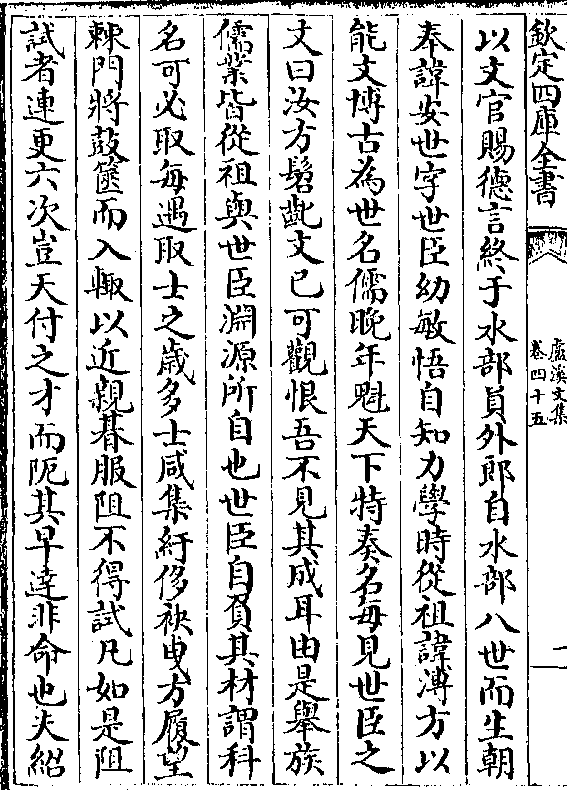 欽定四庫全書
盧溪文集
卷四十五
一
以文官賜德言終于水部員外郎自水部八世而生朝
奉諱安世字世臣幼敏悟自知力學時從祖諱溥方以
能文博古為世名儒晚年魁天下特奏名每見世臣之
文曰汝方髫齔文已可觀恨吾不見其成耳由是舉族
儒業皆從祖與世臣淵源所自也世臣自負其材謂科
名可必取每遇取士之歲多士咸集紆侈袂曳方履望
棘門將鼓篋而入輙以近親朞服阻不得試凡如是阻
試者連更六次豈天付之才而阨其早達非命也夫紹